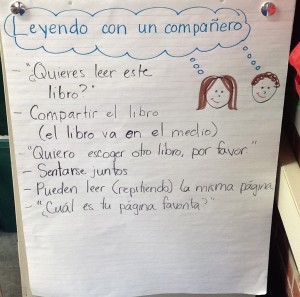 Leyendo con un compañero
- "¿Quieres leer este
libro?"
- Compartir el libro
(el libro va en el medio)
- "Quiero escoger otro libro, por favor."
- Sentarse juntos
- Pueden leer (repitiendo) la misma página
- "¿Cuál es tu página favorita?"